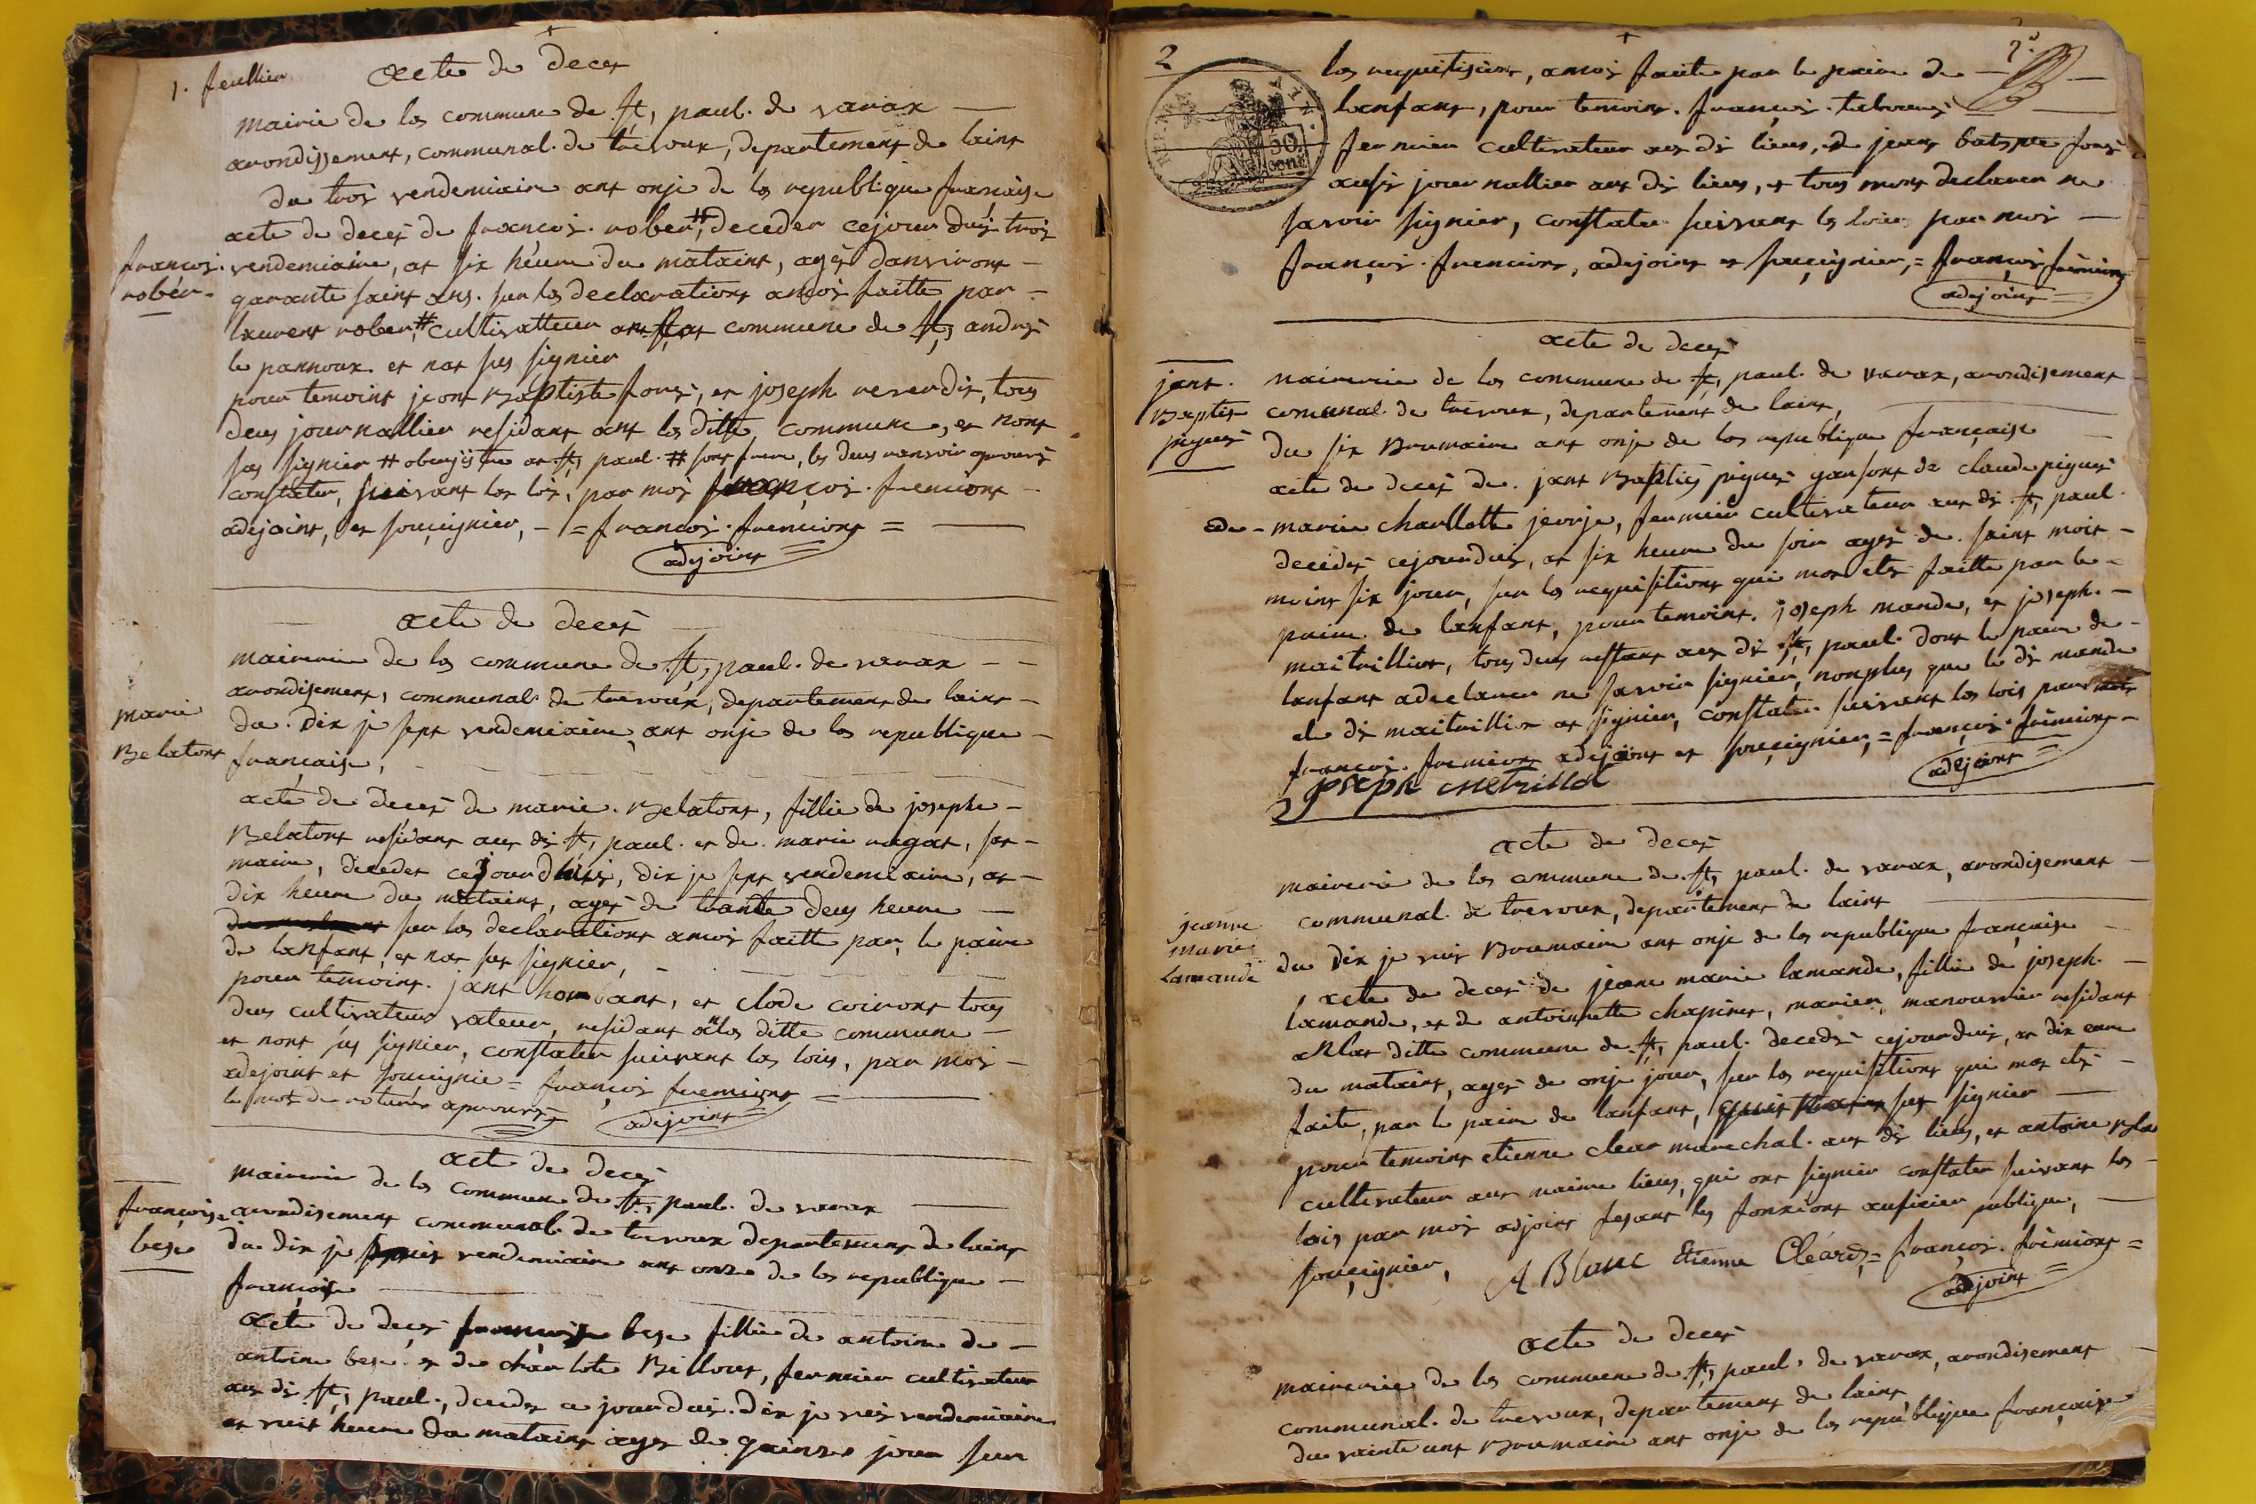 1. feullier
acte de deces
mairie de las commune de st, paul. de varax
arondissement, communal. de trevoux, departement de laint
du troi vendemiaire ant onje de las republique française
acte de deces de françois. rober,# deceder cejourduis trois
françois. rober.
vendemiaire, at six héure du mataint, agés danviront
garante saint ans. sur las declarations a mois faitte par
laurent rober,# cultivatteur commune de st, andres
le pannoux. et nat ses signier
pour temoint jeant Baptiste fousi, et joseph reverdis, tous
deus journallier residant ant las ditte commune, et nont
ses signier # oberjiste at st, paul. # sont frere, les deus ranvoir aprouvés
constater, suivant las lois, par mois françois. fremiont
adejoint, et souçignier, = francois. fremiont =
adejoint
acte de deces
mairerie de las commune de st, paul. de varax
arondisement, communal. de trevoux, departement de laint
marie Belatont
du. dix je sept vendemiaire, ant onje de las republique
française,
acte de deces de marie. Belatont, fillie de joseph
Belatont residant aut dit st, paul. et de. marie ragat, sat
maire, decedet cejourdhuis, dix je sept vendemiaire, at
dix heure du mataint, ages de trante deus heure
sur las declarations a mois faitte par, le paire
de lanfant, et nat ses signier,
pour temoint. jant, et clode coiront tous
deus cultivateur, residant ant las ditte commune
et nont ses signier, constater suivant las lois, par mois
adejoint et souçignie = françois fremiont =
le mot de raturé aprouvés adejoint
act de deces
mairerie de las commune de st, paul. de varax
françoise bese
arondisement communal. de trevoux departement de laint
du dix je vendemiaire ant onze de las republique
française
acte de deces françoise bese fillie de antoine de
antoine bese. et de charlote Billout, fermier cultivateur
aut dit st, paul., decedet ce jourduis. dix je vendemiaire
at vuit héure du mataint ages de quinze jour sur
2
las requisisiont, a mois faite par le paire de
lanfant, pour temoint. françois. teboeuf
fermier cultivateur aut dit lieus, et jeant batiste fousi
ausis journallier aut dit lieus, et tous mont declarer ne
savoir signier, constater suivant las lois par mois
françois. fremiont, adejoint et souçignier, = françois fremiont
adejoint
acte de deces
jant. Baptis pegues
mairerie de las commune de st, paul. de varax, arondisement
comunal. de trevoux, departement de laint,
du six Brumaire ant onje de las republique française
acte de deces de. jant Baptis pigues garsont de claude pigues
ede - marie charllotte jeorje, fermier cultivateur aut dit st, paul.
decedes cejourduis, at six heure du soir ages de. saint mois
moint six jour, sur las requisitiont qui mat etes faitte par le
paire de lanfant, pour temoint. joseph mande, et joseph.
maitrilliet, tous deus restant aut dit st, paul. dont le paire de
lanfant a declarer ne savoir signier, nonplus que le dit mande
et le dit maitrillier at signier, constater suivant las lois par mois
françois. fremiont adejoint et souçignier, = françois. fremiont
adejoint
joseph metrillié
acte de deces
mairerie de las commune de st, paul. de varax, arondisement
communal. de trevoux, departement de laint
jeanne marie Lamande
du dix je vuis Brumaire ant onje de las republique française
acte de deces de jeane marie lamande, fillie de joseph.
lamande, et de antoinette chapint, manouvrier residant
ant las ditte commune de st, paul. decedes cejourduis, at dix eure
du mataint, ages de onje jour, sur las requisitiont qui mat etes
faite, par le paire de lanfant, ses signier
pour temoint etienne clear marechal. aut dit lieus, et antoine Blan
cultivateur aut maime lieus, qui ont signier constater suivant las
lois par mois adjoint fesant les fonxiont auficier publique,
souçignier, A Blanc Etienne Cléard = françois. fremiont =
adejoint
acte de deces
mairerie de las commune de st, paul. de varax, arondisement
communal. de trevoux, departement de laint,
du vainte unt Brumaire ant onje de las republique française